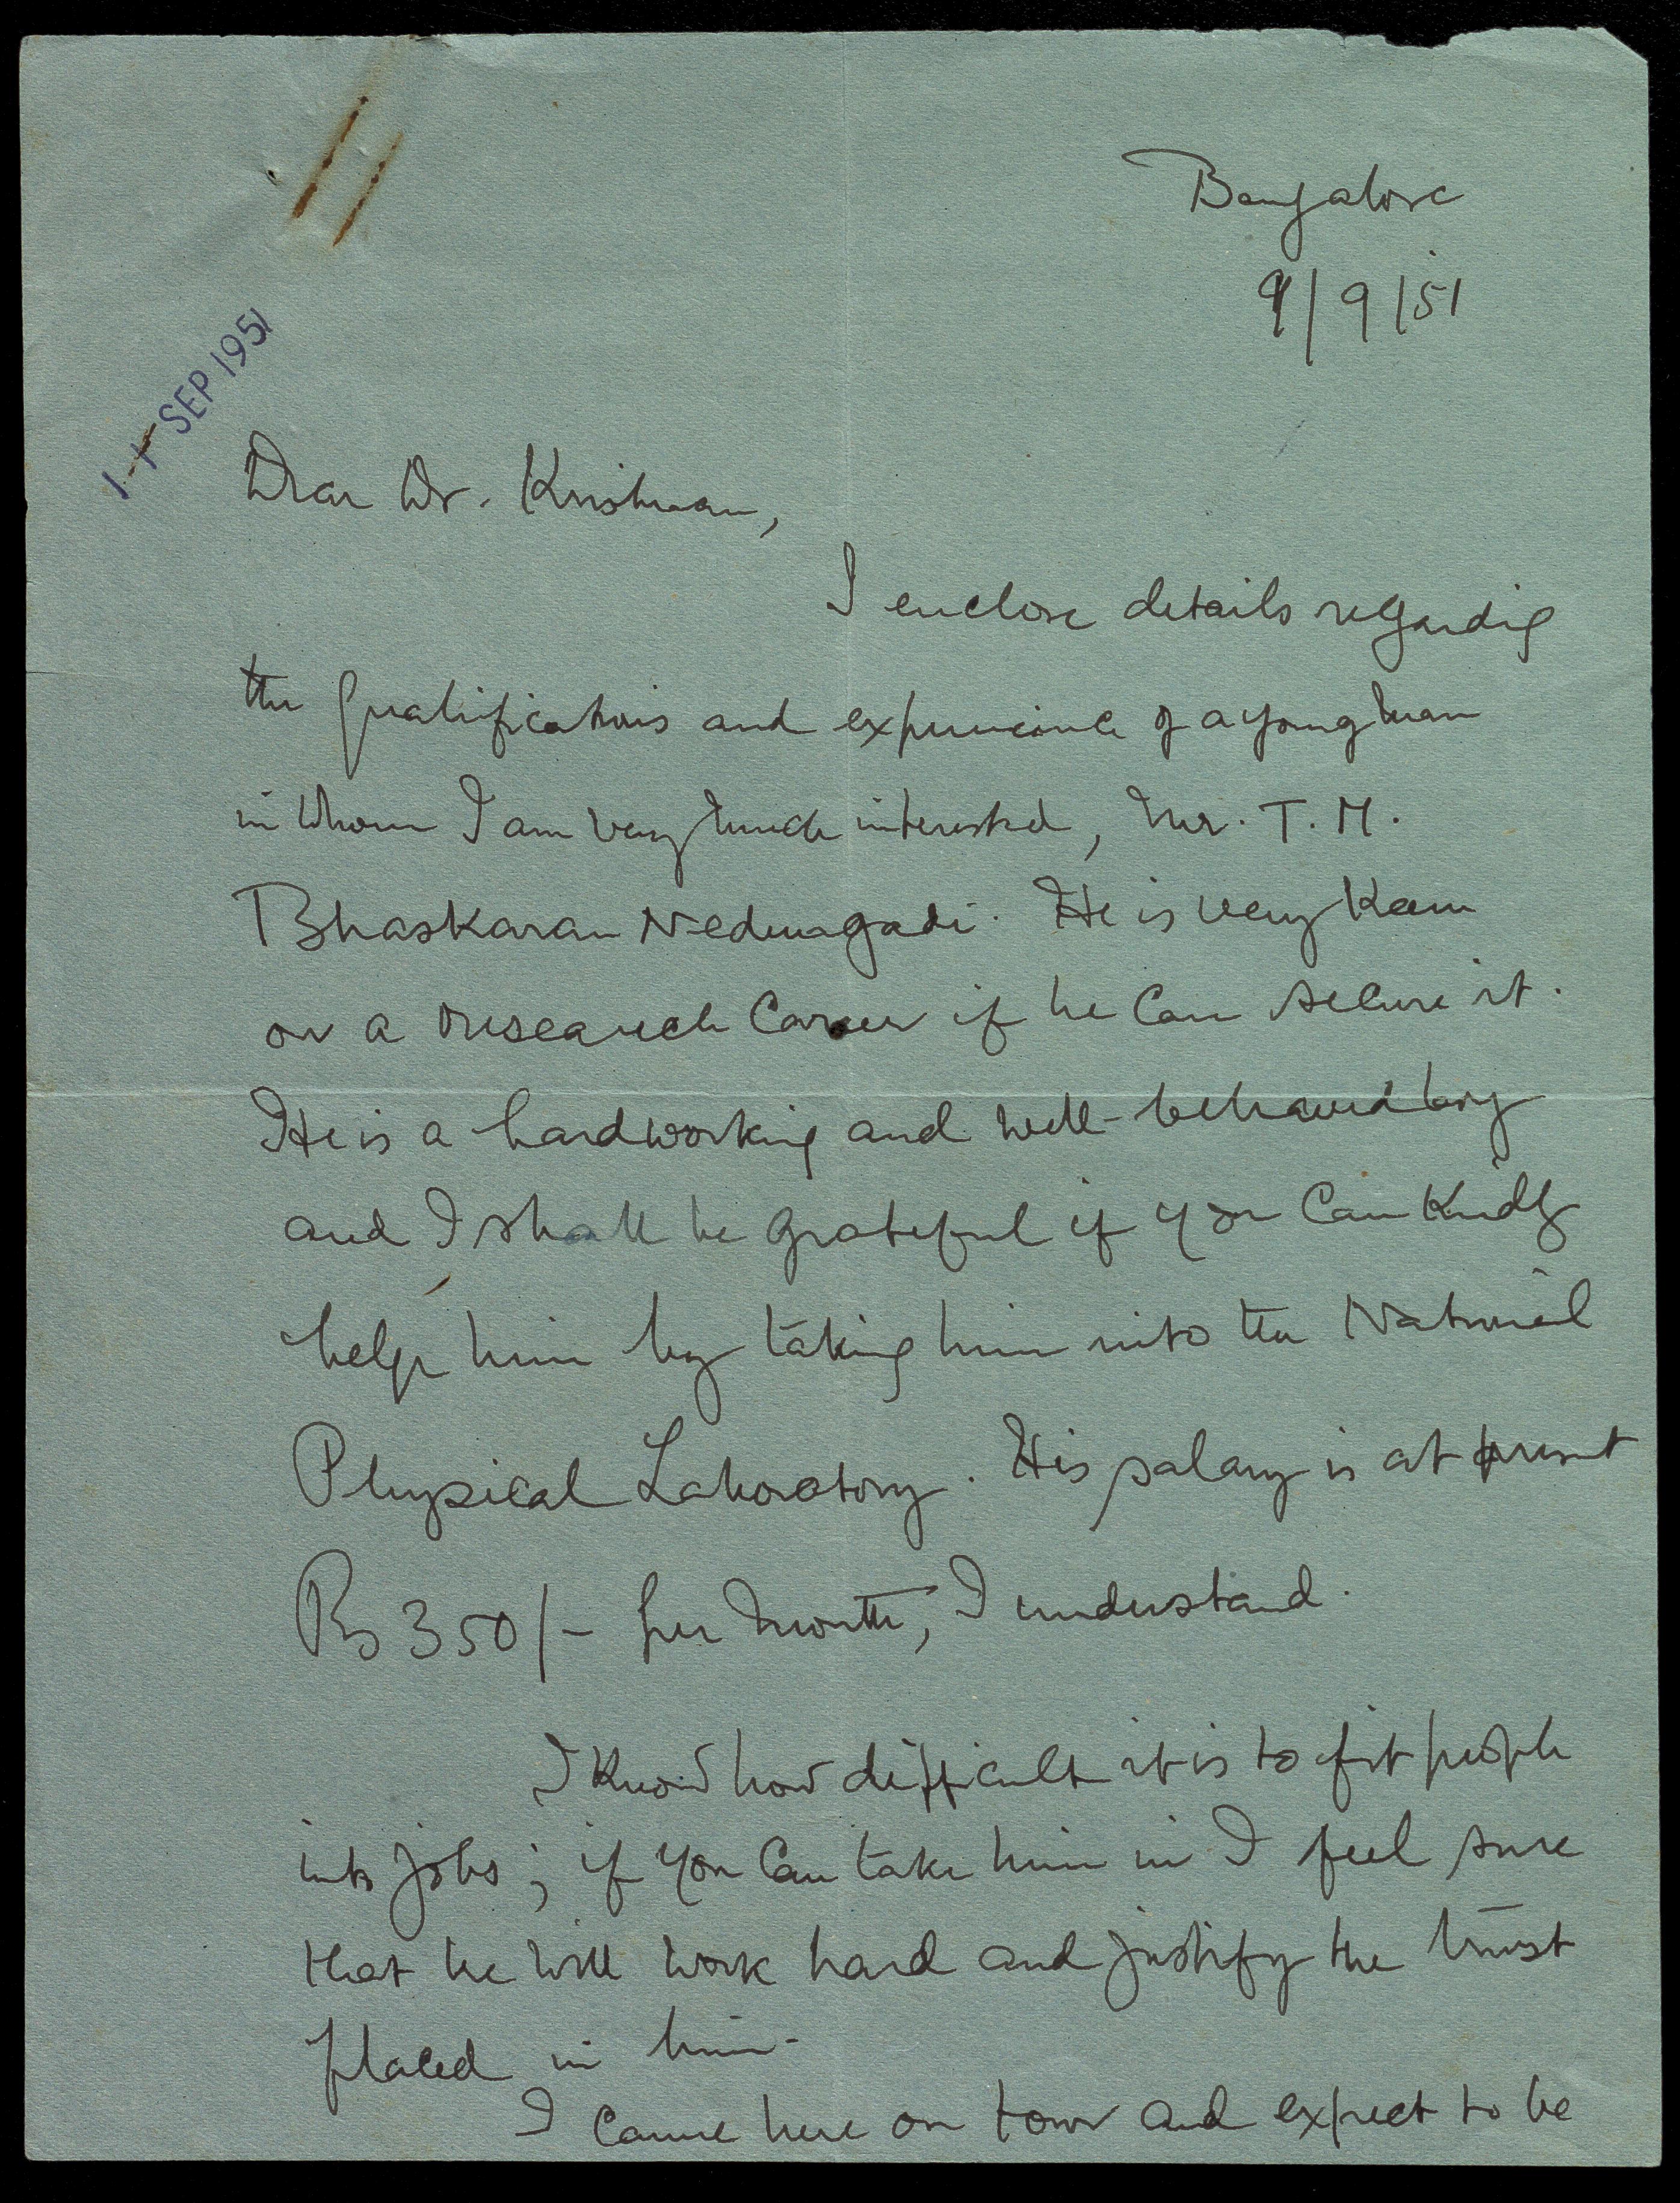 Bangalore
9/9/51
SEP 1951
Dear Dr. Krishnan,
I enclose details regarding
the qualifications and experience of a young man
in whom I am very much interested, Mr. T. M.
Bhaskaran Nedungadi. He is very keen
on a research career if he can secure it.
He is a hardworking and well-behaved boy
and I shall be grateful if you can kindly
help him by taking him into the National
Physical Laboratory. His salary is at present
Rs 350/- per month, I understand.
I know how difficult it is to fit people
into jobs; if you can take him in I feel sure
that he will work hard and justify the trust
placed in him.
I came here on tour and expect to be